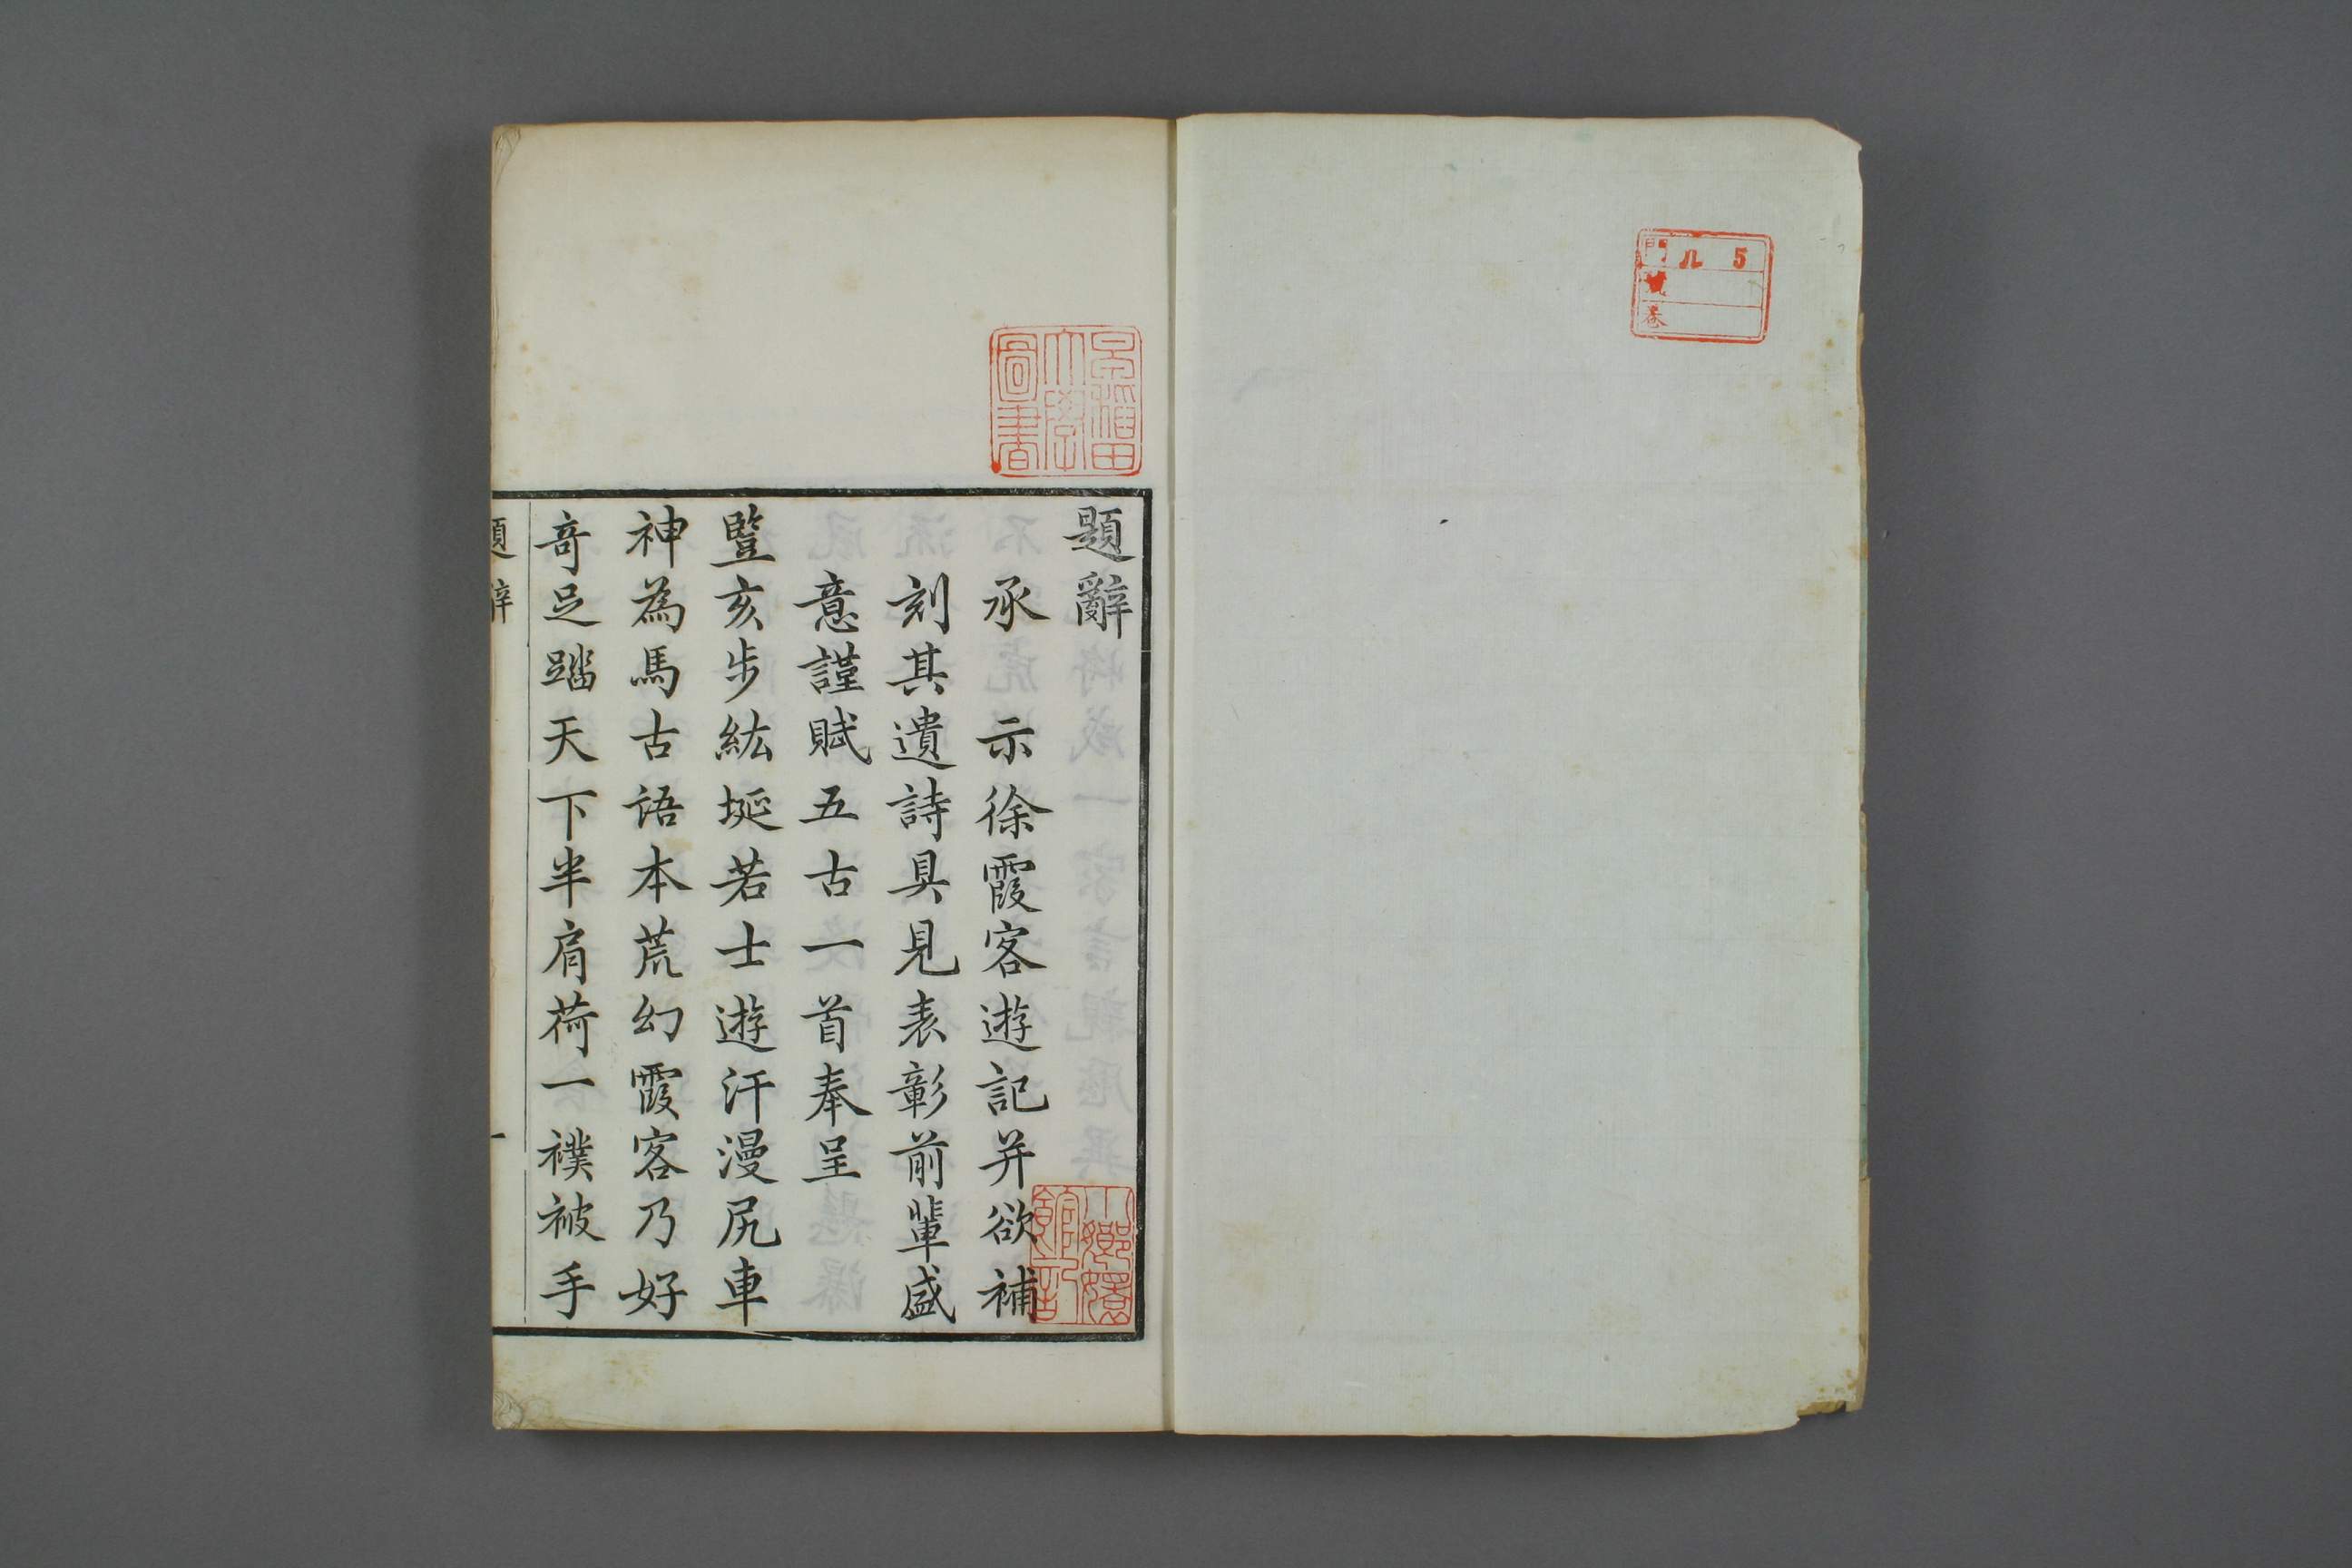 門 ル 5
號
卷
早稻田
大學
圖書
題辭
承 示徐霞客遊記并欲補
刻其遺詩具見表彰前輩盛
意謹賦五古一首奉呈
豎亥步紘埏若士遊汗漫尻車
神為馬古語本荒幻霞客乃好
奇足踏天下半肩荷一襆被手
題辭
一
小嫏嬛